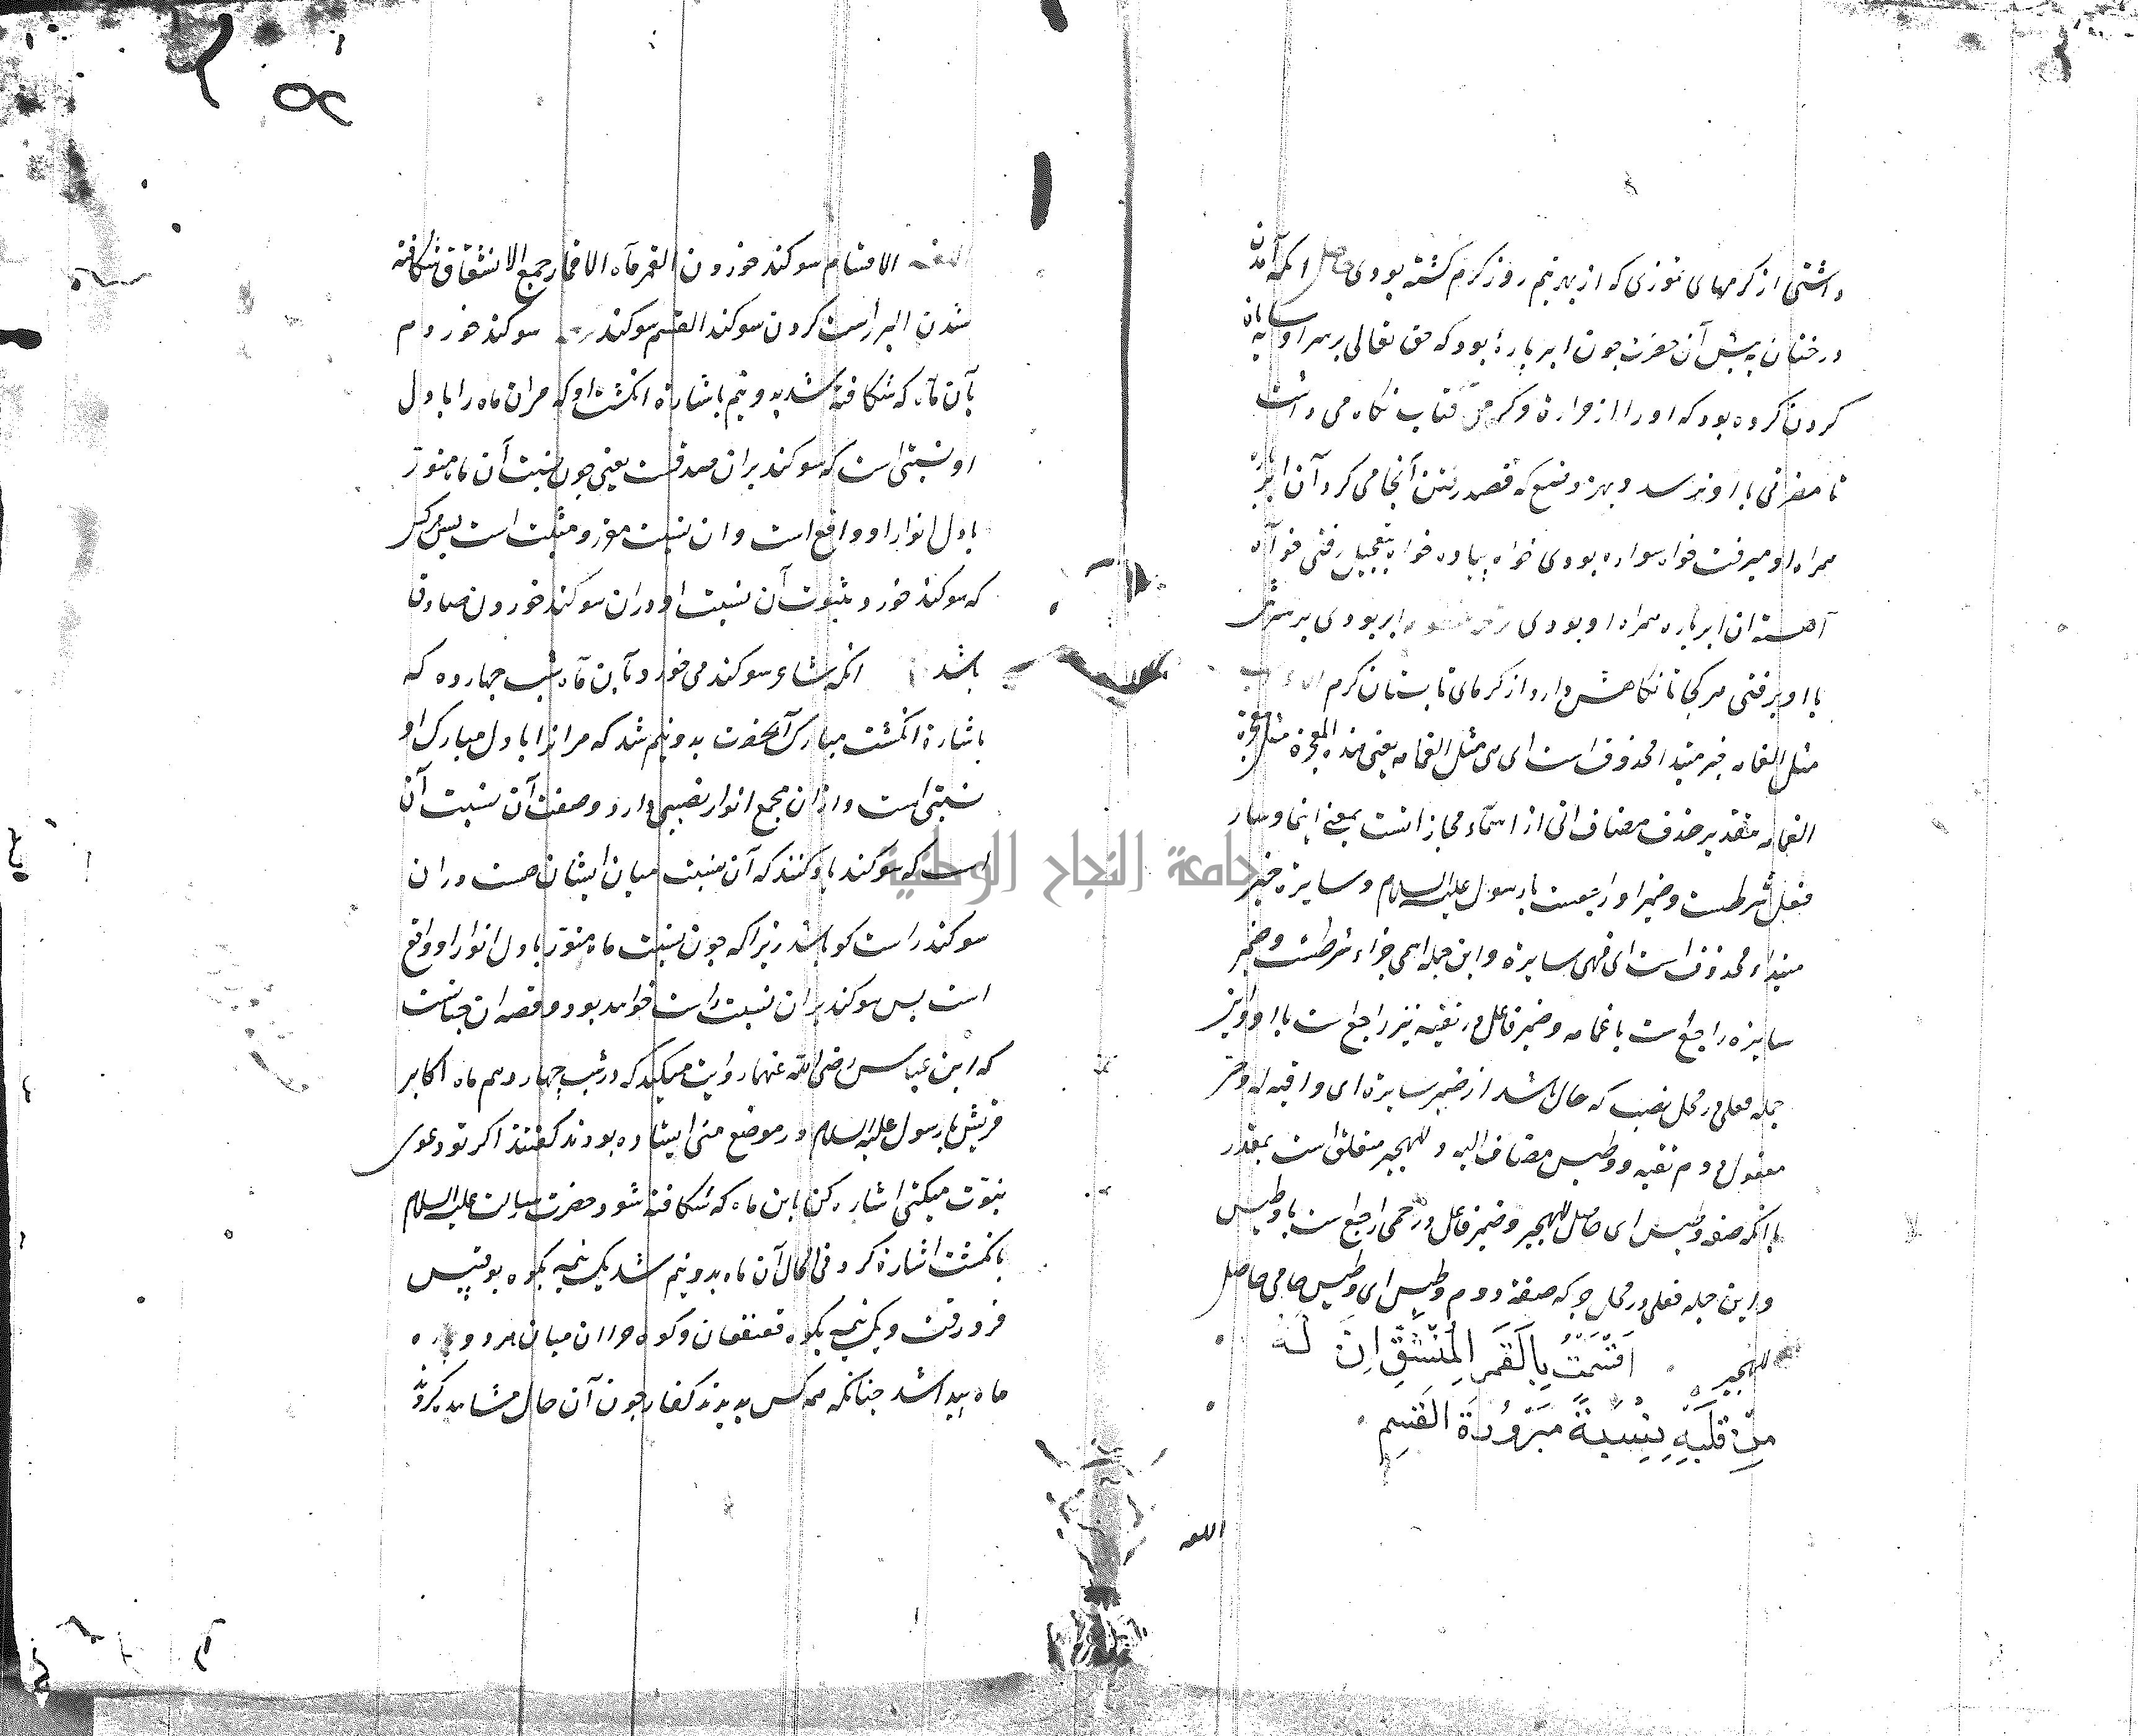 داشتی از کرمهای تموزی که از بهر نیم روز کرم کشته بودی حاصل انکه آمدن
درختان به پیش آن حضرت چون ابر پارۀ بود که حق تعالی بر سر او سایه بان
کردن کرده بود که او را از حرارة و کرمی آفتاب نکاه می داشت
تا مضرتی با او نرسد و بهر وضع که قصد رفتن آنجا می کرد آن ابر پاره
همراه او میرفت خواه سواره بودی خواه پیاده خواه بتعجیل رفتی خواه
آهسته ان ابر پاره همراه او بودی ابر بودی بر سرش
با او برفتی هر کجا تا نکاهش دارد از کرمای تابستان کرم
مثل الغمامه خبر مبتدا محذوف است ای هی مثل الغمامه یعنی هذه المعجزة مثل معجزة
الغمامه بتقدیر حذف مضاف انی از اسماء مجازاتست بمعنی اینما و سار
فعل شرطست و ضمیر او راجعست با رسول علیه السلام و سایرة خبر
مبتداء محذوف است ای فهی سایرة و این جمله اسمی جزاء شرطست و ضمیر
سایره راجع است با غمامه و ضمیر فاعل در تقیه نیز راجع است با او و این
جمله فعلی در محل نصب که حال باشد از ضمیر سایرة ای واقیه له و حر
مفعول دوم تقیه و وطیس مضاف الیه و للهجیر متعلق است بمقدر
با انکه صفه وطیس ای حاصل للهجیر و ضمیر فاعل در حمی راجع است با وطیس
و این جمله فعلی در محل جر که صفة دوم وطیس ای وطیس حامی حاصل
للهجیر اَقْسَمْتُ بِالْقَمَرِ الْمُنْشَقِّ اِنَّ لَهُ
مِنْ قَلْبِهِ نِسْبَةً مَبْرُورَةَ الْقَسَمِ
اللغه
اللغه الاقسام سوکند خوردن القمر ماه الاقمار جمع الانشقاق شکافته
شدن البر راست کردن سوکند القسم سوکند سوکند خوردم
بآن ماه که شکافته شد بدو نیم باشارة انکشت او که مران ماه را با دل
او نسبتی است که سوکند بران صدقست یعنی چون نسبت آن ماه منور
با دل انوار او واقع است و ان نسبت مقرر و مثبت است پس هر کس
که سوکند خورد بثبوت آن نسبت او دران سوکند خوردن صادق
باشد انکه شاعر سوکند می خورد باین ماه شب چهارده که
باشارة انکشت مبارک آنحضرت بدو نیم شد که مرانرا با دل مبارک او
نسبتی است و از ان مجمع انوار نصیبی دارد و صفت آن نسبت آن
است که سوکند یاد کنند که آن نسبت میان ایشان هست دران
سوکند راست کو باشد زیرا که چون نسبت ماه منور با دل انوار او واقع
است پس سوکند بران نسبت راست خواهد بود و قصه ان چنانست
که ابن عباس رضی الله عنهما روایت میکند که در شب چهاردهم ماه اکابر
قریش با رسول علیه السلام در موضع منی ایستاده بودند کفتند اکر تو دعوی
نبوّت میکنی اشاره کن باین ماه که شکافته شود حضرت رسالت علیه السلام
بانکشت اشارة کرد فی الحال آن ماه بدو نیم شد یک نیمه بکوه بوقبیس
فرو رفت و یک نیمه بکوه قعیقعان و کوه حرا ان میان هر دو پاره
ماه پیدا شد چنانکه همه کس بدیدند کفار چون آن حال مشاهد کردند
جامعة النجاح الوطنية